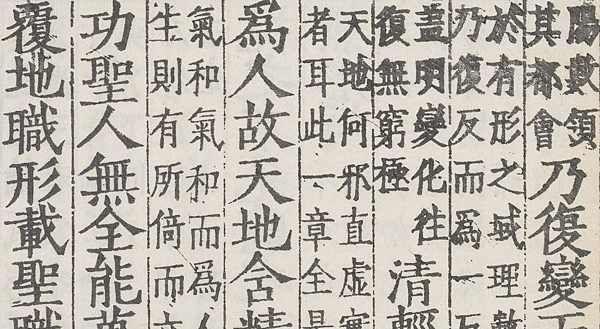 陽數領
其都會
乃復變
於有形之域理數
乃復反而爲一
蓋明變化往
復無窮極
清輕
天地何邪直虛實
者耳此一章全是
爲人故天地含精
氣和氣和而爲人
生則有所倚而立
功聖人無全能萬
覆地職形載聖職